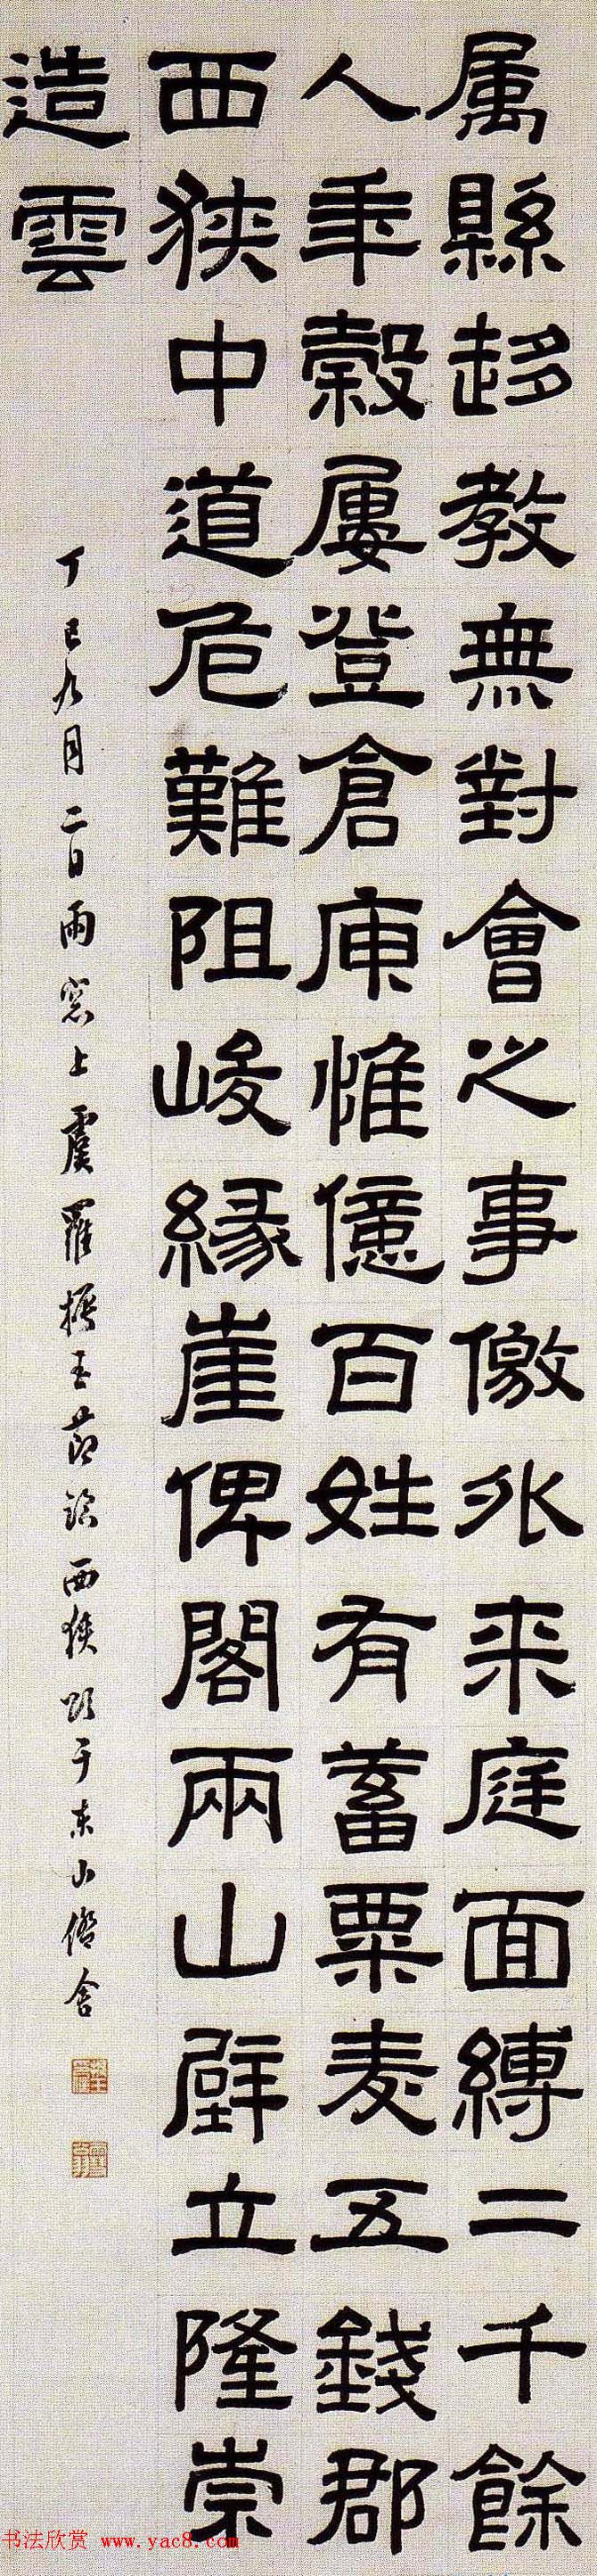 属縣趍教無對會之事儌外来庭面縛二千餘
人年穀屢登倉庾惟億百姓有蓄粟麦五錢郡
西狹中道危難阻峻緣崖俾閣兩山壁立隆崇
造雲
丁巳九月二日雨窓上虞羅振玉節臨西狹頌于東山僑舍
书法欣赏 www.yac8.com